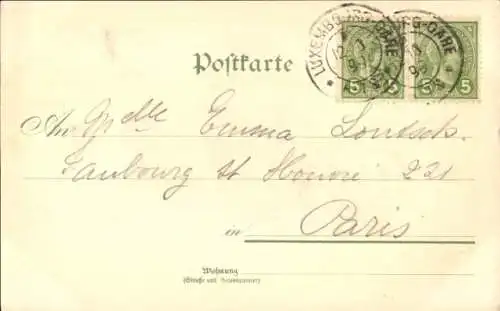 LUXEMBOURG-GARE
5 5 5 5
Postkarte
An Mlle Emma
Faubourg St Honoré 221
in Paris
Wohnung
(Straße und Hausnummer)